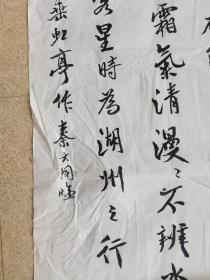 霜氣清漫〻不辨水
客星時為湖州之行
垂虹亭作 秦大同